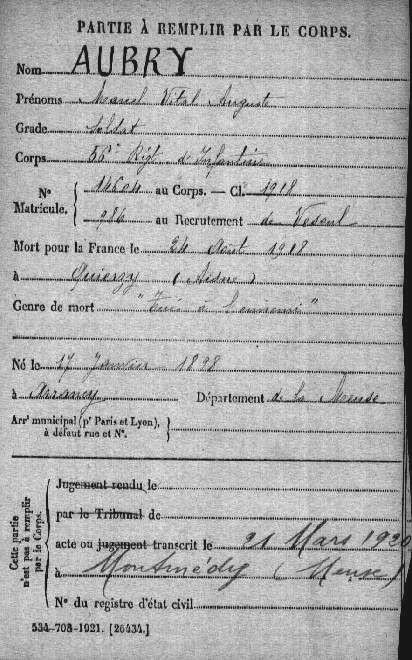 PARTIE À REMPLIR PAR LE CORPS.
Nom AUBRY
Prénoms Marcel Vital Auguste
Grade Soldat
Corps 56e Régt d'Infanterie
N° Matricule. { 14604 au Corps. — Cl. 1918
986 au Recrutement de Vesoul
Mort pour la France le 24 Août 1918
à Quierzy (Aisne)
Genre de mort "Tué à l'ennemi"
Né le 17 Janvier 1898
à Arrancy Département de la Meuse
Arrt municipal (pr Paris et Lyon), à défaut rue et N°. }
Cette partie n'est pas à remplir par le Corps.
Jugement rendu le
par le Tribunal de
acte ou jugement transcrit le 21 Mars 1920
à Montmédy (Meuse)
N° du registre d'état civil
534-708-1921. [26434.]